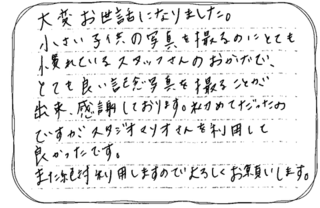 大変お世話になりました。
小さい子供の写真を撮るのにとても
慣れているスタッフさんのおかげで、
とても良い記念写真を撮ることが
出来、感謝しております。初めてだったの
ですがスタジオマリオさんを利用して
良かったです。
また絶対利用しますのでよろしくお願いします。